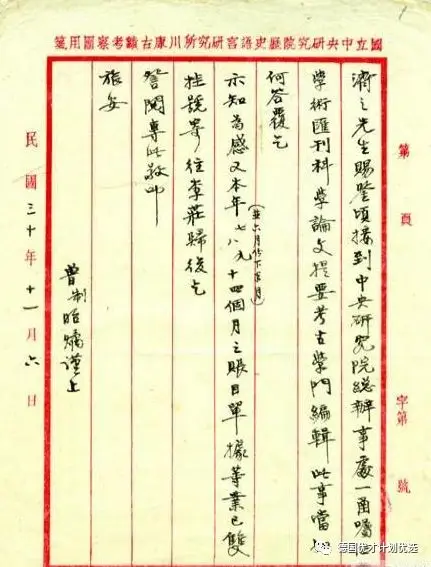 國立中央研究院歷史語言研究所川康古蹟考察團用箋
第 頁 字第 號
濟之先生賜鑒頃接到中央研究院總辦事處一函囑任
學術匯刊科學論文提要考古學門編輯此事當如
何答覆乞
示知為感又本年七八九十四個月之賬目單據等業已雙
(並六月份下半月)
挂號寄往李莊歸後乞
詧閱專此敬叩
旅安
曾制昭燏謹上
民國三十年十一月六日
德国优才计划优选